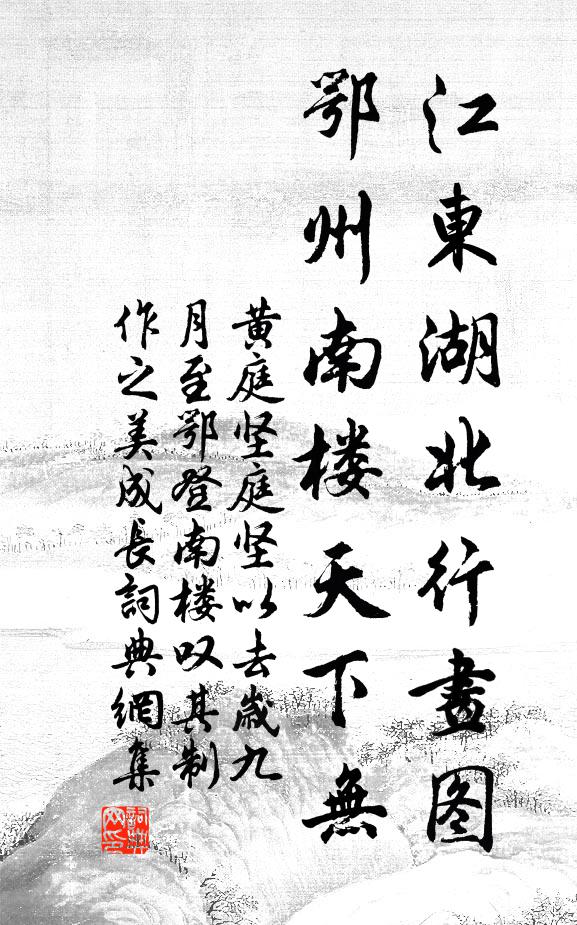 江東湖北行畫图
鄂州南楼天下無
黄庭坚庭坚以去歲九
月至鄂登南楼叹其制
作之美成长詞典網集
詞典網印